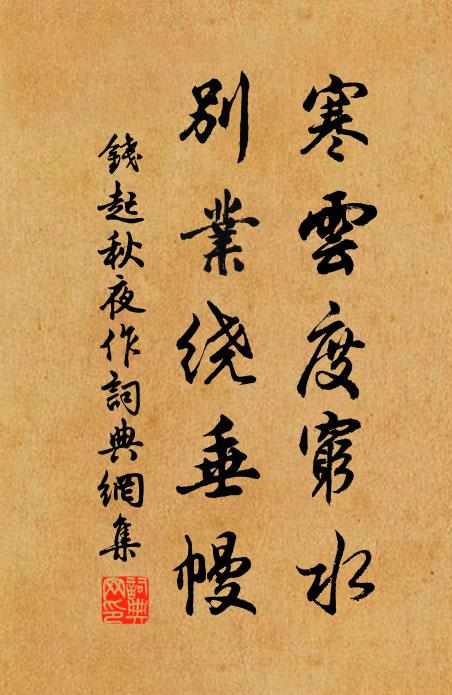 寒雲度窮水
別業繞垂幔
錢起秋夜作詞典網集
詞典
網印